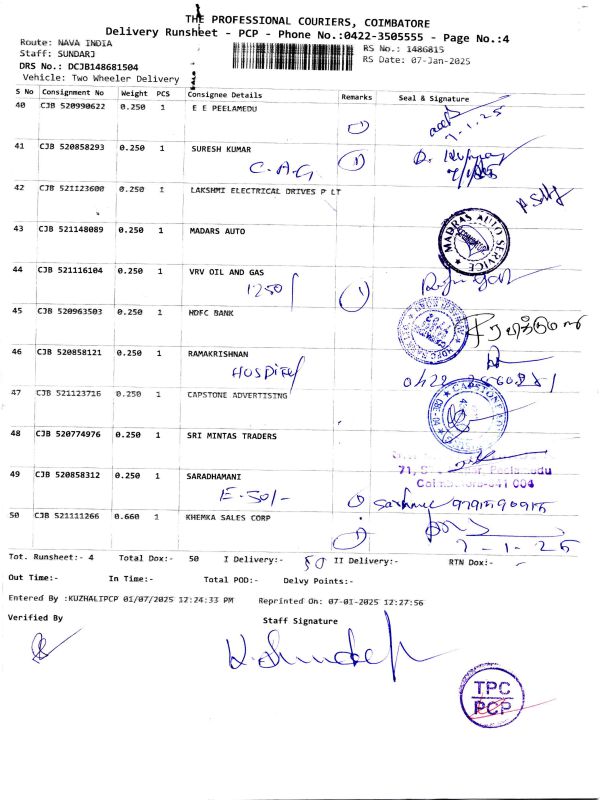 THE PROFESSIONAL COURIERS, COIMBATORE
Delivery Runsheet - PCP - Phone No.:0422-3505555 - Page No.:4
Route: NAVA INDIA
Staff: SUNDARJ
DRS No.: DCJB148681504
Vehicle: Two Wheeler Delivery
RS No.: 1486815
RS Date: 07-Jan-2025
S No Consignment No Weight PCS Consignee Details Remarks Seal & Signature
40 CJB 520990622 0.250 1 E E PEELAMEDU
1
7-1-25
41 CJB 520858293 0.250 1 SURESH KUMAR
C.A.G. 1
42 CJB 521123600 0.250 1 LAKSHMI ELECTRICAL DRIVES P LT
43 CJB 521148089 0.250 1 MADARS AUTO
MADRAS AUTO SERVICE
44 CJB 521116104 0.250 1 VRV OIL AND GAS
1250/ 1
45 CJB 520963503 0.250 1 HDFC BANK
46 CJB 520858121 0.250 1 RAMAKRISHNAN
Hospital
47 CJB 521123716 0.250 1 CAPSTONE ADVERTISING
CAPSTONE
48 CJB 520774976 0.250 1 SRI MINTAS TRADERS
71, Peelamedu
Coimbatore-641 004
49 CJB 520858312 0.250 1 SARADHAMANI
E.50/-
50 CJB 521111266 0.660 1 KHEMKA SALES CORP
1
7-1-25
Tot. Runsheet:- 4 Total Dox:- 50 I Delivery:- 50 II Delivery:- RTN Dox:-
Out Time:- In Time:- Total POD:- Delvy Points:-
Entered By :KUZHALIPCP 01/07/2025 12:24:33 PM Reprinted On: 07-01-2025 12:27:56
Verified By Staff Signature
TPC
PCP